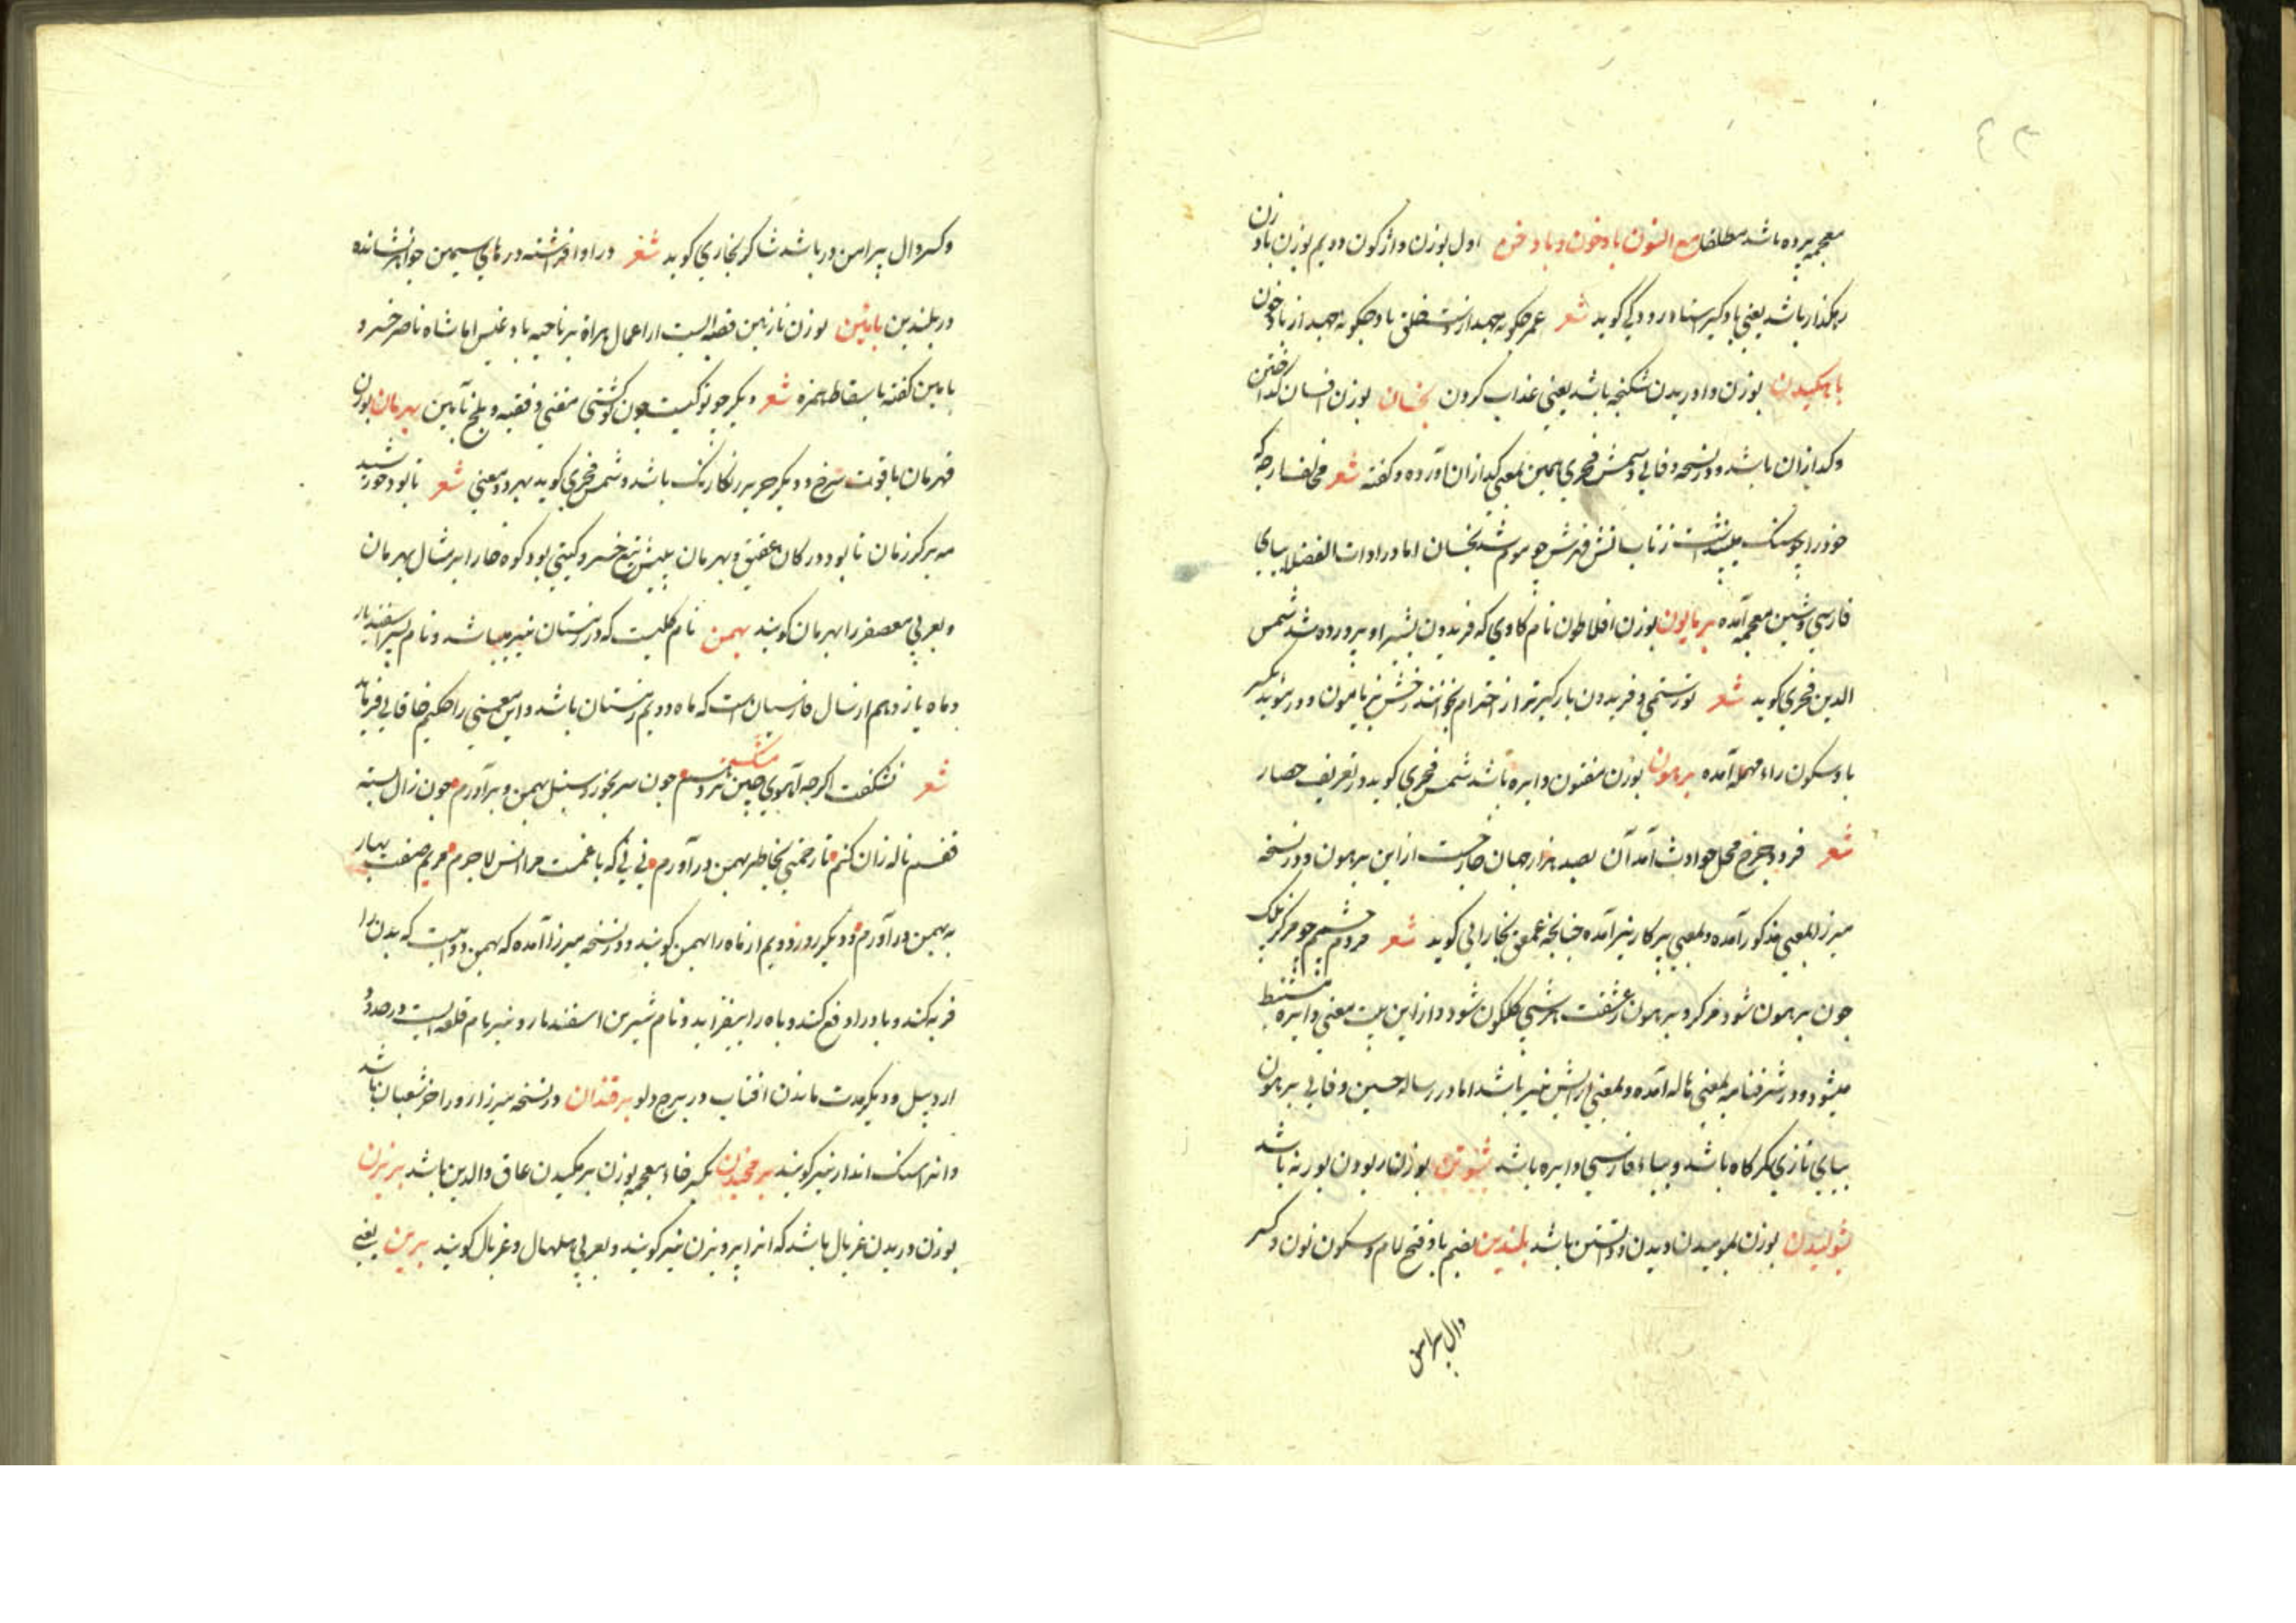 ٤٣
معجمه برده باشد مطلقا مع النون بادخون و بادخرم اول بوزن واژکون دویم بوزن بادزن
رهکذار باشد یعنی بادکیر استاد رودکی کوید شعر عمر چکونه جهد از دست خلق باد چکونه جهد از بادخون
باهکیدن بوزن واوریدن شکنجه باشد یعنی عذاب کردن بخسان بوزن افسان کداختن
و کدازان باشد و در نسخه وفایی و شمس فخری بهمین معنی کدازان آورده و کفته شعر مخالف ارچه که
خود را چو سنک میپنداشت ز تاب آتش قهرش چو موم شد بخسان اما در ادات الفضلا ببای
فارسی و شین معجمه آمده برمایون بوزن افلاطون نام کاوی که فریدون بشیر او پرورده شد شمس
الدین فخری کوید شعر تو رستمی و فریدون بارکیر ترا از احترام بخوانند رخش برمایون و در مؤید بکسر
با و سکون راء مهمله آمده برهون بوزن مفتون دایره باشد شمس فخری کوید در تعریف حصار
شعر فرود چرخ محل حوادث آمد آن بصد هزار جهان خارجست از این برهون و در نسخه
میرزا بمعنی مذکور آمده و بمعنی پرکار نیز آمده چنانچه عمعق بخارایی کوید شعر مردم چشمم چو مرکز نیک
چون برهون شود مرکز و برهون ز عشقت هر شبی کلکون شود و از این بیت معنی دایره مستنبط
میشود و در شرفنامه بمعنی هاله آمده و بمعنی آرایش نیز باشد اما در رساله حسین وفایی برهون
ببای تازی کمرکاه باشد و ببای فارسی دایره باشد بوزن ربودن بوزنه باشد
بشولیدن بوزن بپوسیدن دیدن و دانستن باشد بلندین بضم با و فتح لام و سکون نون و کسر
دال پیرامن
و کسر دال پیرامن در باشد شاکر بخاری کوید شعر در او افراشته درهای سیمین جواهر نشانده
در بلندین بابئین بوزن نازنین قصبه ایست از اعمال هراة بر ناحیه بادغیس اما شاه ناصر خسرو
بامین کفته باسقاط همزه شعر دیکر چو تو کیست چون کوئی مفتی و فقیه و بلخ تا بامین بهرمان بوزن
قهرمان یاقوت سرخ و دیکر حریر رنکارنک باشد و شمس فخری کوید بهر دو معنی شعر تا بود خورشید
مه بر کرزمان تا بود در کان عقیق و بهرمان پیش تیغ خسرو کیتی بود کوه خارا بر مثال بهرمان
و بعربی معصفر را بهرمان کویند بهمن نام کلیست که در زمستان نیز میباشد و نام پسر اسفندیار
و ماه یازدهم از سال فارسیان است که ماه دویم زمستان باشد و این معنی را حکیم خاقانی فرماید
شعر نشکفت اکرچه آهوی چین مشک بر دهم چون سر بخورد سنبل بهمن برآورم چون زال بسته
قفسم ناله زان کنم تا رحمتی بخاطر بهمن درآورم نی نی که با غمت مرا انس لاجرم مریم صفت بهار
به بهمن درآورم و دیکر روز دویم از ماه را بهمن کویند و در نسخه میرزا آمده که بهمن دوائیست که بدن را
فربه کند و باد را دفع کند و باه را بیفزاید و نام شیرین اسفندیار و نیز نام قلعه ایست در حدود
اردبیل و دیکر مدت ماندن آفتاب در برج دلو برقندان در نسخه میرزا روز آخر شعبان باشد
و آنرا سنک انداز نیز کویند برمخیدن بکسر خاء معجمه بوزن برمکیدن عاق والدین باشد بریزن
بوزن دریدن غربال باشد که آنرا پرویزن نیز کویند و بعربی هلهال و غربال کویند برین یعنی